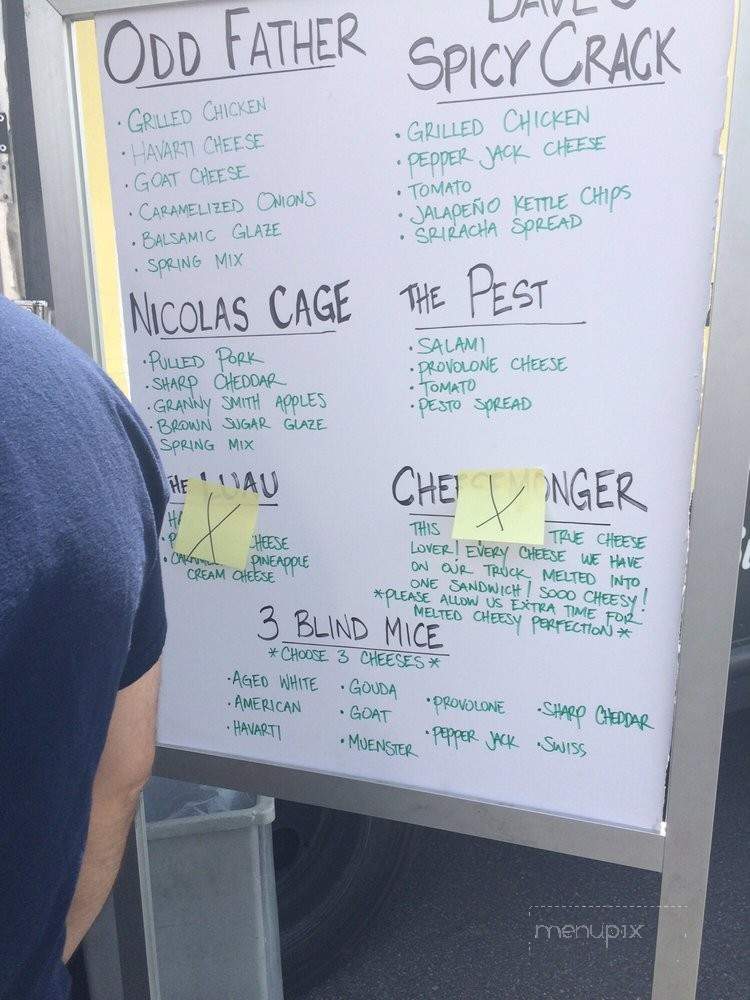 ODD FATHER
• GRILLED CHICKEN
• HAVARTI CHEESE
• GOAT CHEESE
• CARAMELIZED ONIONS
• BALSAMIC GLAZE
• SPRING MIX
DAVE'S
SPICY CRACK
• GRILLED CHICKEN
• PEPPER JACK CHEESE
• TOMATO
• JALAPEÑO KETTLE CHIPS
• SRIRACHA SPREAD
NICOLAS CAGE
• PULLED PORK
• SHARP CHEDDAR
• GRANNY SMITH APPLES
• BROWN SUGAR GLAZE
SPRING MIX
THE PEST
• SALAMI
• PROVOLONE CHEESE
• TOMATO
• PESTO SPREAD
THE LUAU
CHEESE
PINEAPPLE
CREAM CHEESE
X
CHEESEMONGER
THIS TRUE CHEESE
LOVER! EVERY CHEESE WE HAVE
ON OUR TRUCK MELTED INTO
ONE SANDWICH! SOOO CHEESY!
*PLEASE ALLOW US EXTRA TIME FOR
MELTED CHEESY PERFECTION*
X
3 BLIND MICE
*CHOOSE 3 CHEESES*
• AGED WHITE
• AMERICAN
• HAVARTI
• GOUDA
• GOAT
• MUENSTER
• PROVOLONE
• PEPPER JACK
• SHARP CHEDDAR
• SWISS
menupix